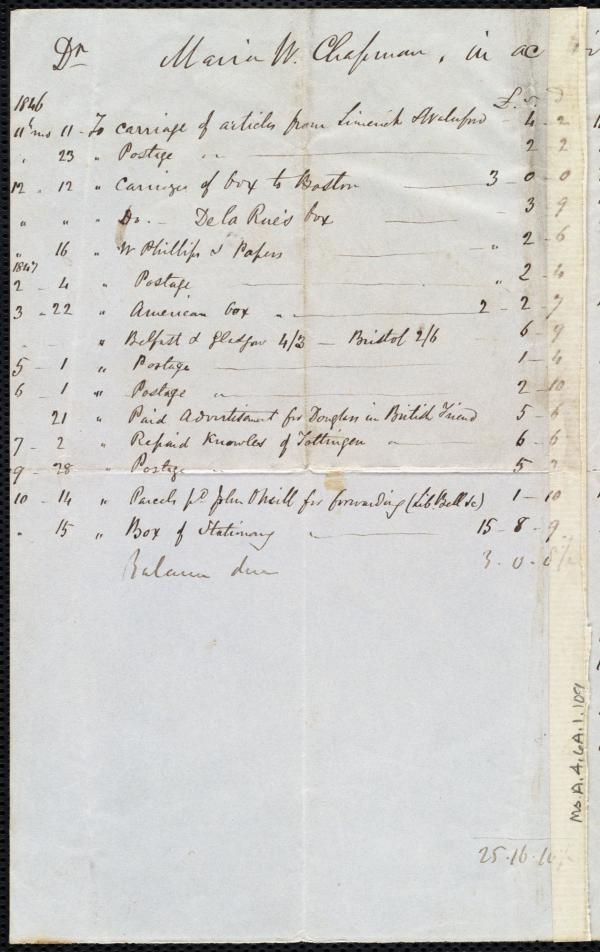 Dr Maria W. Chapman, in ac
1846 £. s. d
11th mo 11 - To carriage of articles from Limerick & Waterford - 4 - 2
" 23 " Postage " 2 2
12 " 12 " Carriage of box to Boston 3 - 0 - 0
" " " Do. - De la Rue's box 3 9
" 16 " W Phillips & Papers " 2 - 6
1847
2 - 4 " Postage " 2 - 4
3 - 22 " American box " 2 - 2 - 7
" Belfast & Glasgow 4/3 - Bristol 2/6 6 - 9
5 - 1 " Postage 1 - 4
6 - 1 " Postage " 2 - 10
21 " Paid Advertisement for Douglass in British Friend 5 - 6
7 - 2 " Repaid Knowles of Tottingen " 6 - 6
9 - 28 " Postage " 5
10 - 14 " Parcels pd John O'Neill for forwarding (Lib. Bell &c) 1 - 10
" 15 " Box of Stationery " 15 - 8 - 9
Balance due 3 . 0 .
25 . 16 .
Ms.A.4.6A.1.109